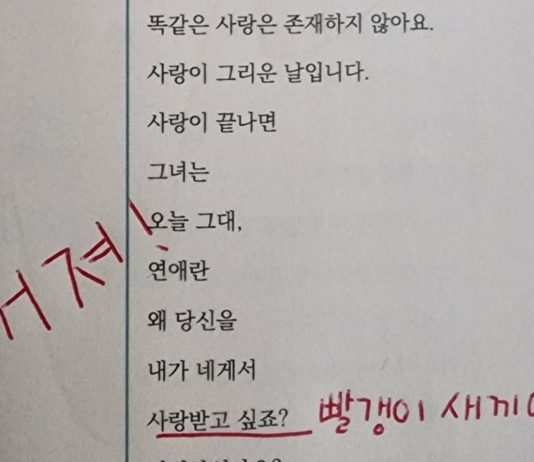 똑같은 사랑은 존재하지 않아요.
사랑이 그리운 날입니다.
사랑이 끝나면
그녀는
오늘 그대,
연애란
왜 당신을
내가 네게서
사랑받고 싶죠? 빨갱이 새끼